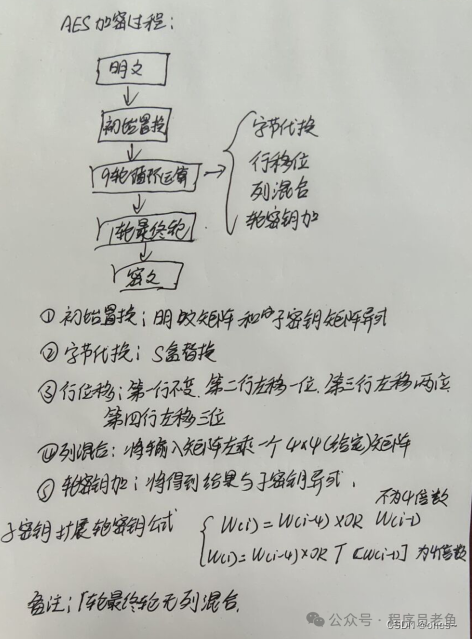 AES加密过程:
明文
初始置换
9轮循环运算
字节代换
行移位
列混合
轮密钥加
1轮最终轮
密文
① 初始置换:明文矩阵和子密钥矩阵异或
② 字节代换:S盒替换
③ 行位移:第一行不变、第二行左移一位、第三行左移两位
第四行左移三位
④ 列混合:将输入矩阵左乘一个4×4(给定)矩阵
⑤ 轮密钥加:将得到结果与子密钥异或.
子密钥扩展轮密钥公式
不为4倍数
W(i)=W(i-4) XOR W(i-1)
W(i)=W(i-4) XOR T[W(i-1)] 为4倍数
备注:1轮最终轮无列混合.
公众号·程序员老鱼